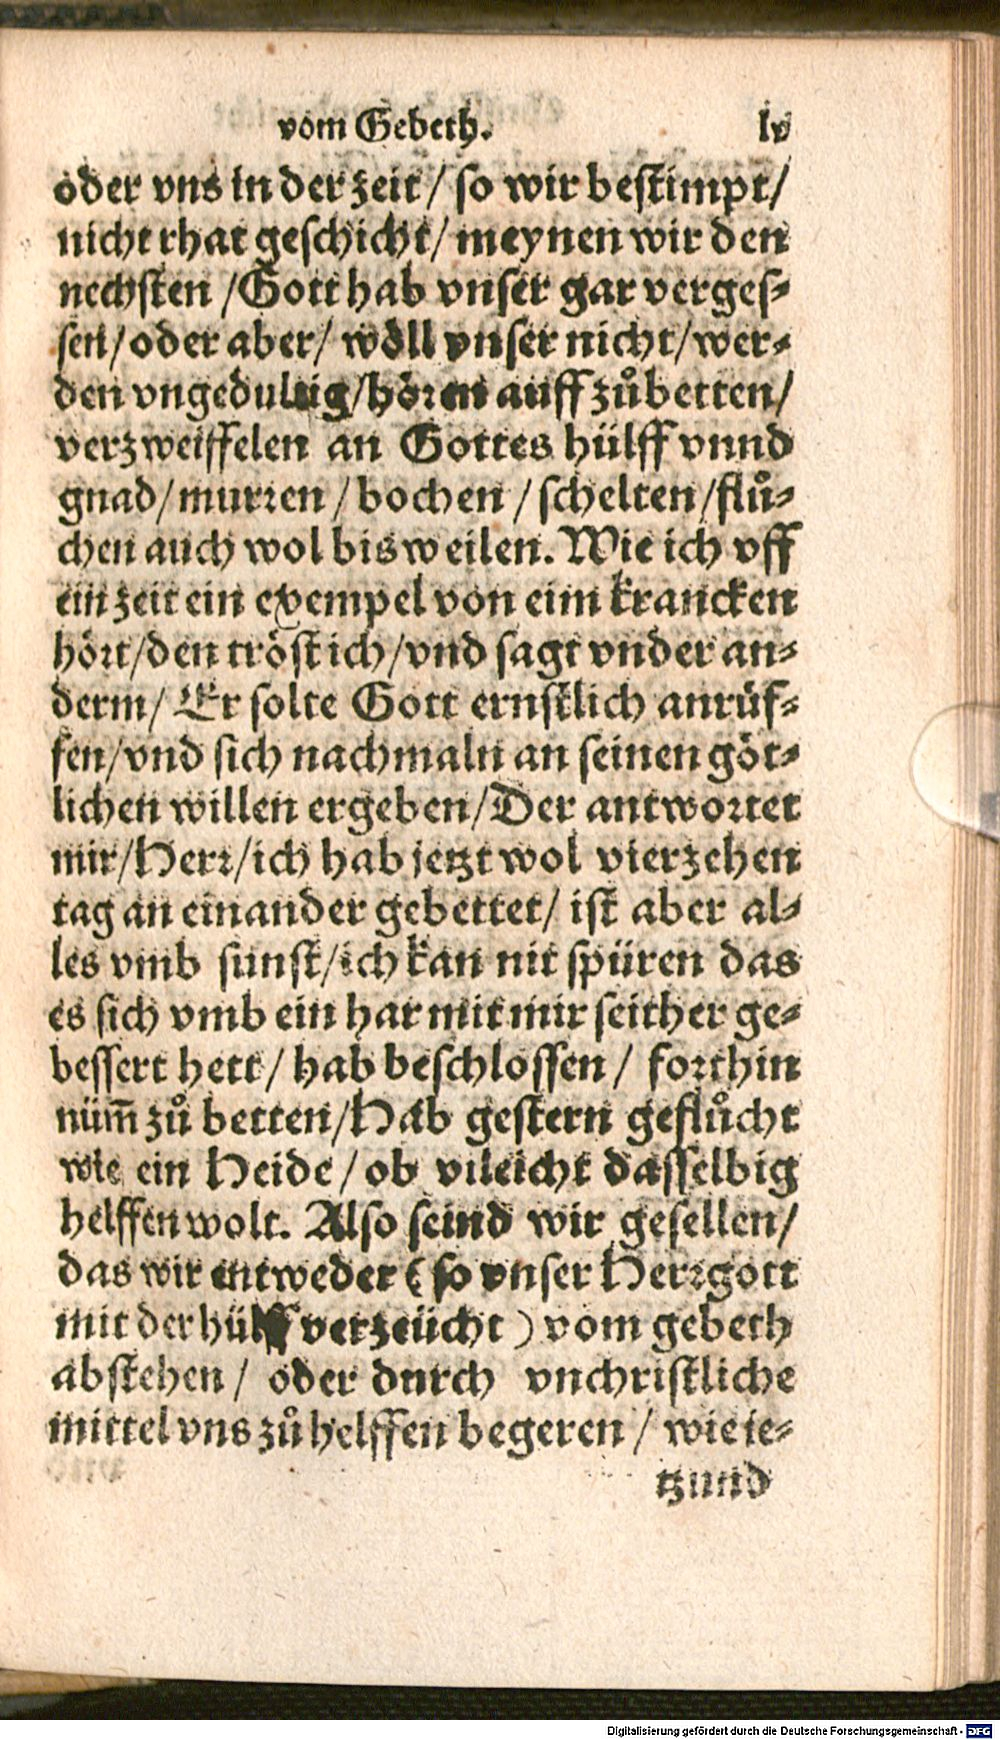 vom Gebeth. lv
oder vns in der zeit / so wir bestimpt /
nicht rhat geschicht / meynen wir den
nechsten / Gott hab vnser gar verges⸗
sen / oder aber / wöll vnser nicht / wer⸗
den vngedultig / hören auff zů betten /
verzweiffelen an Gottes hülff vnnd
gnad / murren / bochen / schelten / flů⸗
chen auch wol bisweilen. Wie ich vff
ein zeit ein exempel von eim krancken
hört / den tröst ich / vnd sagt vnder an⸗
derm / Er solte Gott ernstlich anrüf⸗
fen / vnd sich nachmaln an seinen göt⸗
lichen willen ergeben / Der antwortet
mir / Herr / ich hab jetzt wol vierzehen
tag an einander gebettet / ist aber al⸗
les vmb sunst / ich kan nit spüren das
es sich vmb ein har mit mir seither ge⸗
bessert hett / hab beschlossen / forthin
nüm̃ zů betten / Hab gestern geflůcht
wie ein Heide / ob vileicht dasselbig
helffen wolt. Also seind wir gesellen /
das wir entweder ( so vnser Herrgott
mit der hülff verzeücht ) vom gebeth
abstehen / oder durch vnchristliche
mittel vns zů helffen begeren / wie ie⸗
tzund
Digitalisierung gefördert durch die Deutsche Forschungsgemeinschaft - DFG